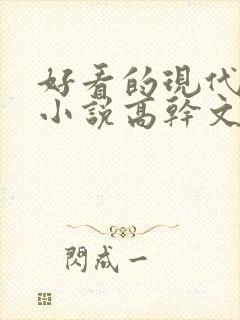 好看的現代
小說高幹文
閃成一